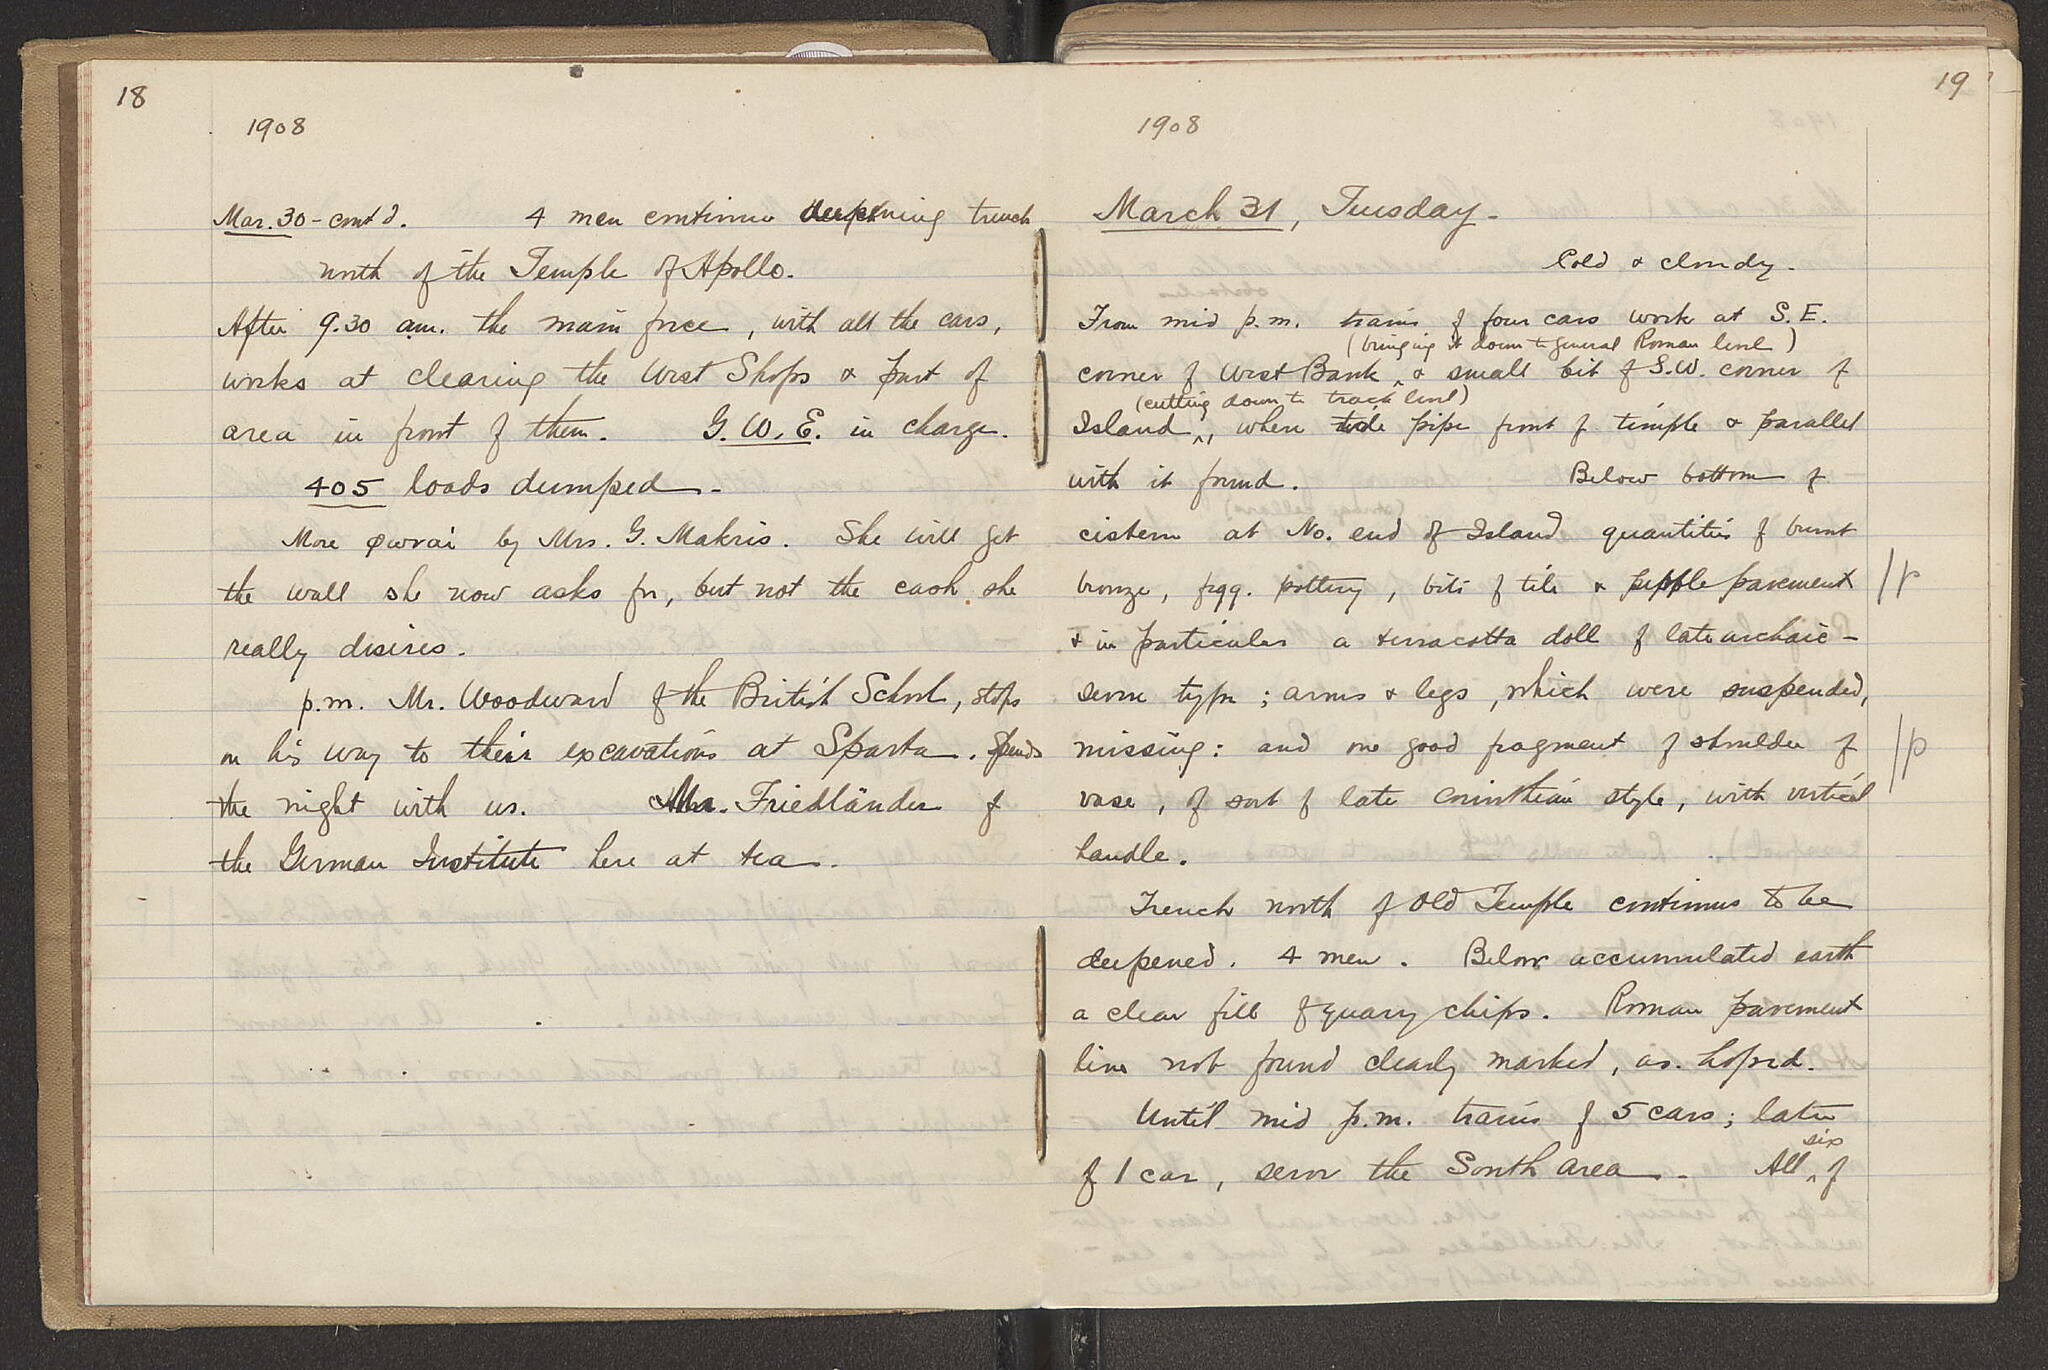 18
1908
Mar. 30 - cont'd. 4 men continue deepening trench
north of the Temple of Apollo.
After 9.30 am. the main force, with all the cars,
works at clearing the West Shops & part of
area in front of them. G. W. E. in charge.
405 loads dumped -
More φωναί by Mrs. G. Makris. She will get
the wall she now asks for, but not the cash she
really desires.
p.m. Mr. Woodward of the British School, stops
on his way to their excavations at Sparta. Spends
the night with us. Mr. Friedländer of
the German Institute here at tea.
19
1908
March 31, Tuesday -
Cold & cloudy.
From mid p.m. trains of four cars work at S.E.
(bringing it down to general Roman level)
corner of West Bank & small bit of S.W. corner of
(cutting down to track level)
Island, where tile pipe front of temple & parallel
with it found. Below bottom of
cistern at No. end of Island quantities of burnt
bronze, frgg. pottery, bits of tile & pebble pavement
& in particular a terracotta doll of late archaic -
severe type; arms & legs, which were suspended,
missing: and one good fragment of shoulder of
vase, of sort of late Corinthian style, with vertical
handle.
Trench north of Old Temple continues to be
deepened. 4 men. Below accumulated earth
a clear fill of quarry chips. Roman pavement
line not found clearly marked, as hoped.
Until mid p.m. trains of 5 cars; later
six
of 1 car, serve the South area - All of